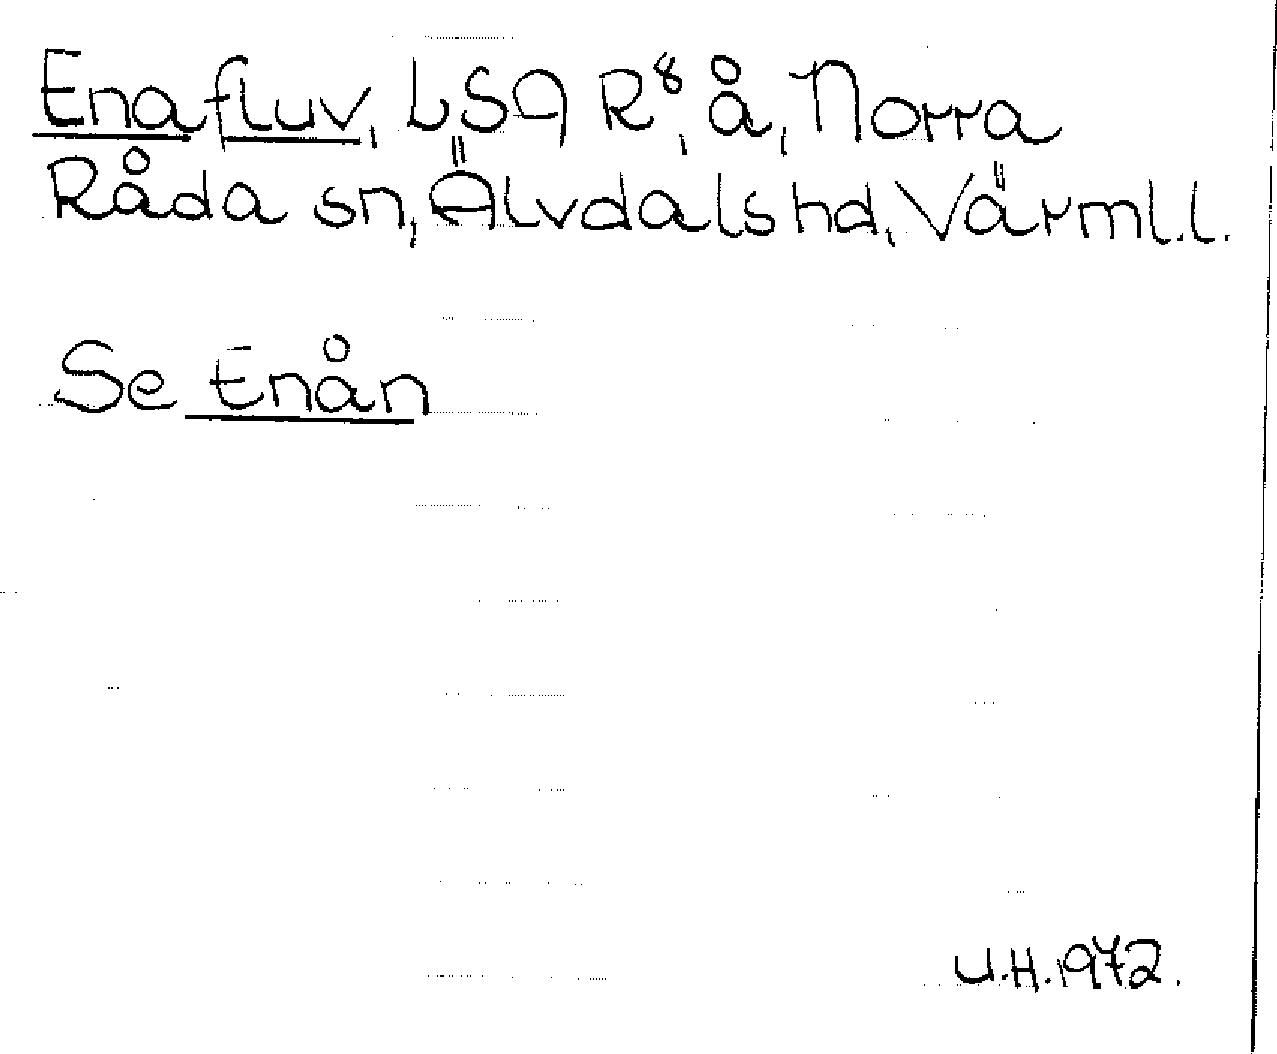 Ena fluv, LSA R⁸, å, Norra
Råda sn, Älvdals hd, Värml.l.
Se Enån
U.H. 1972.